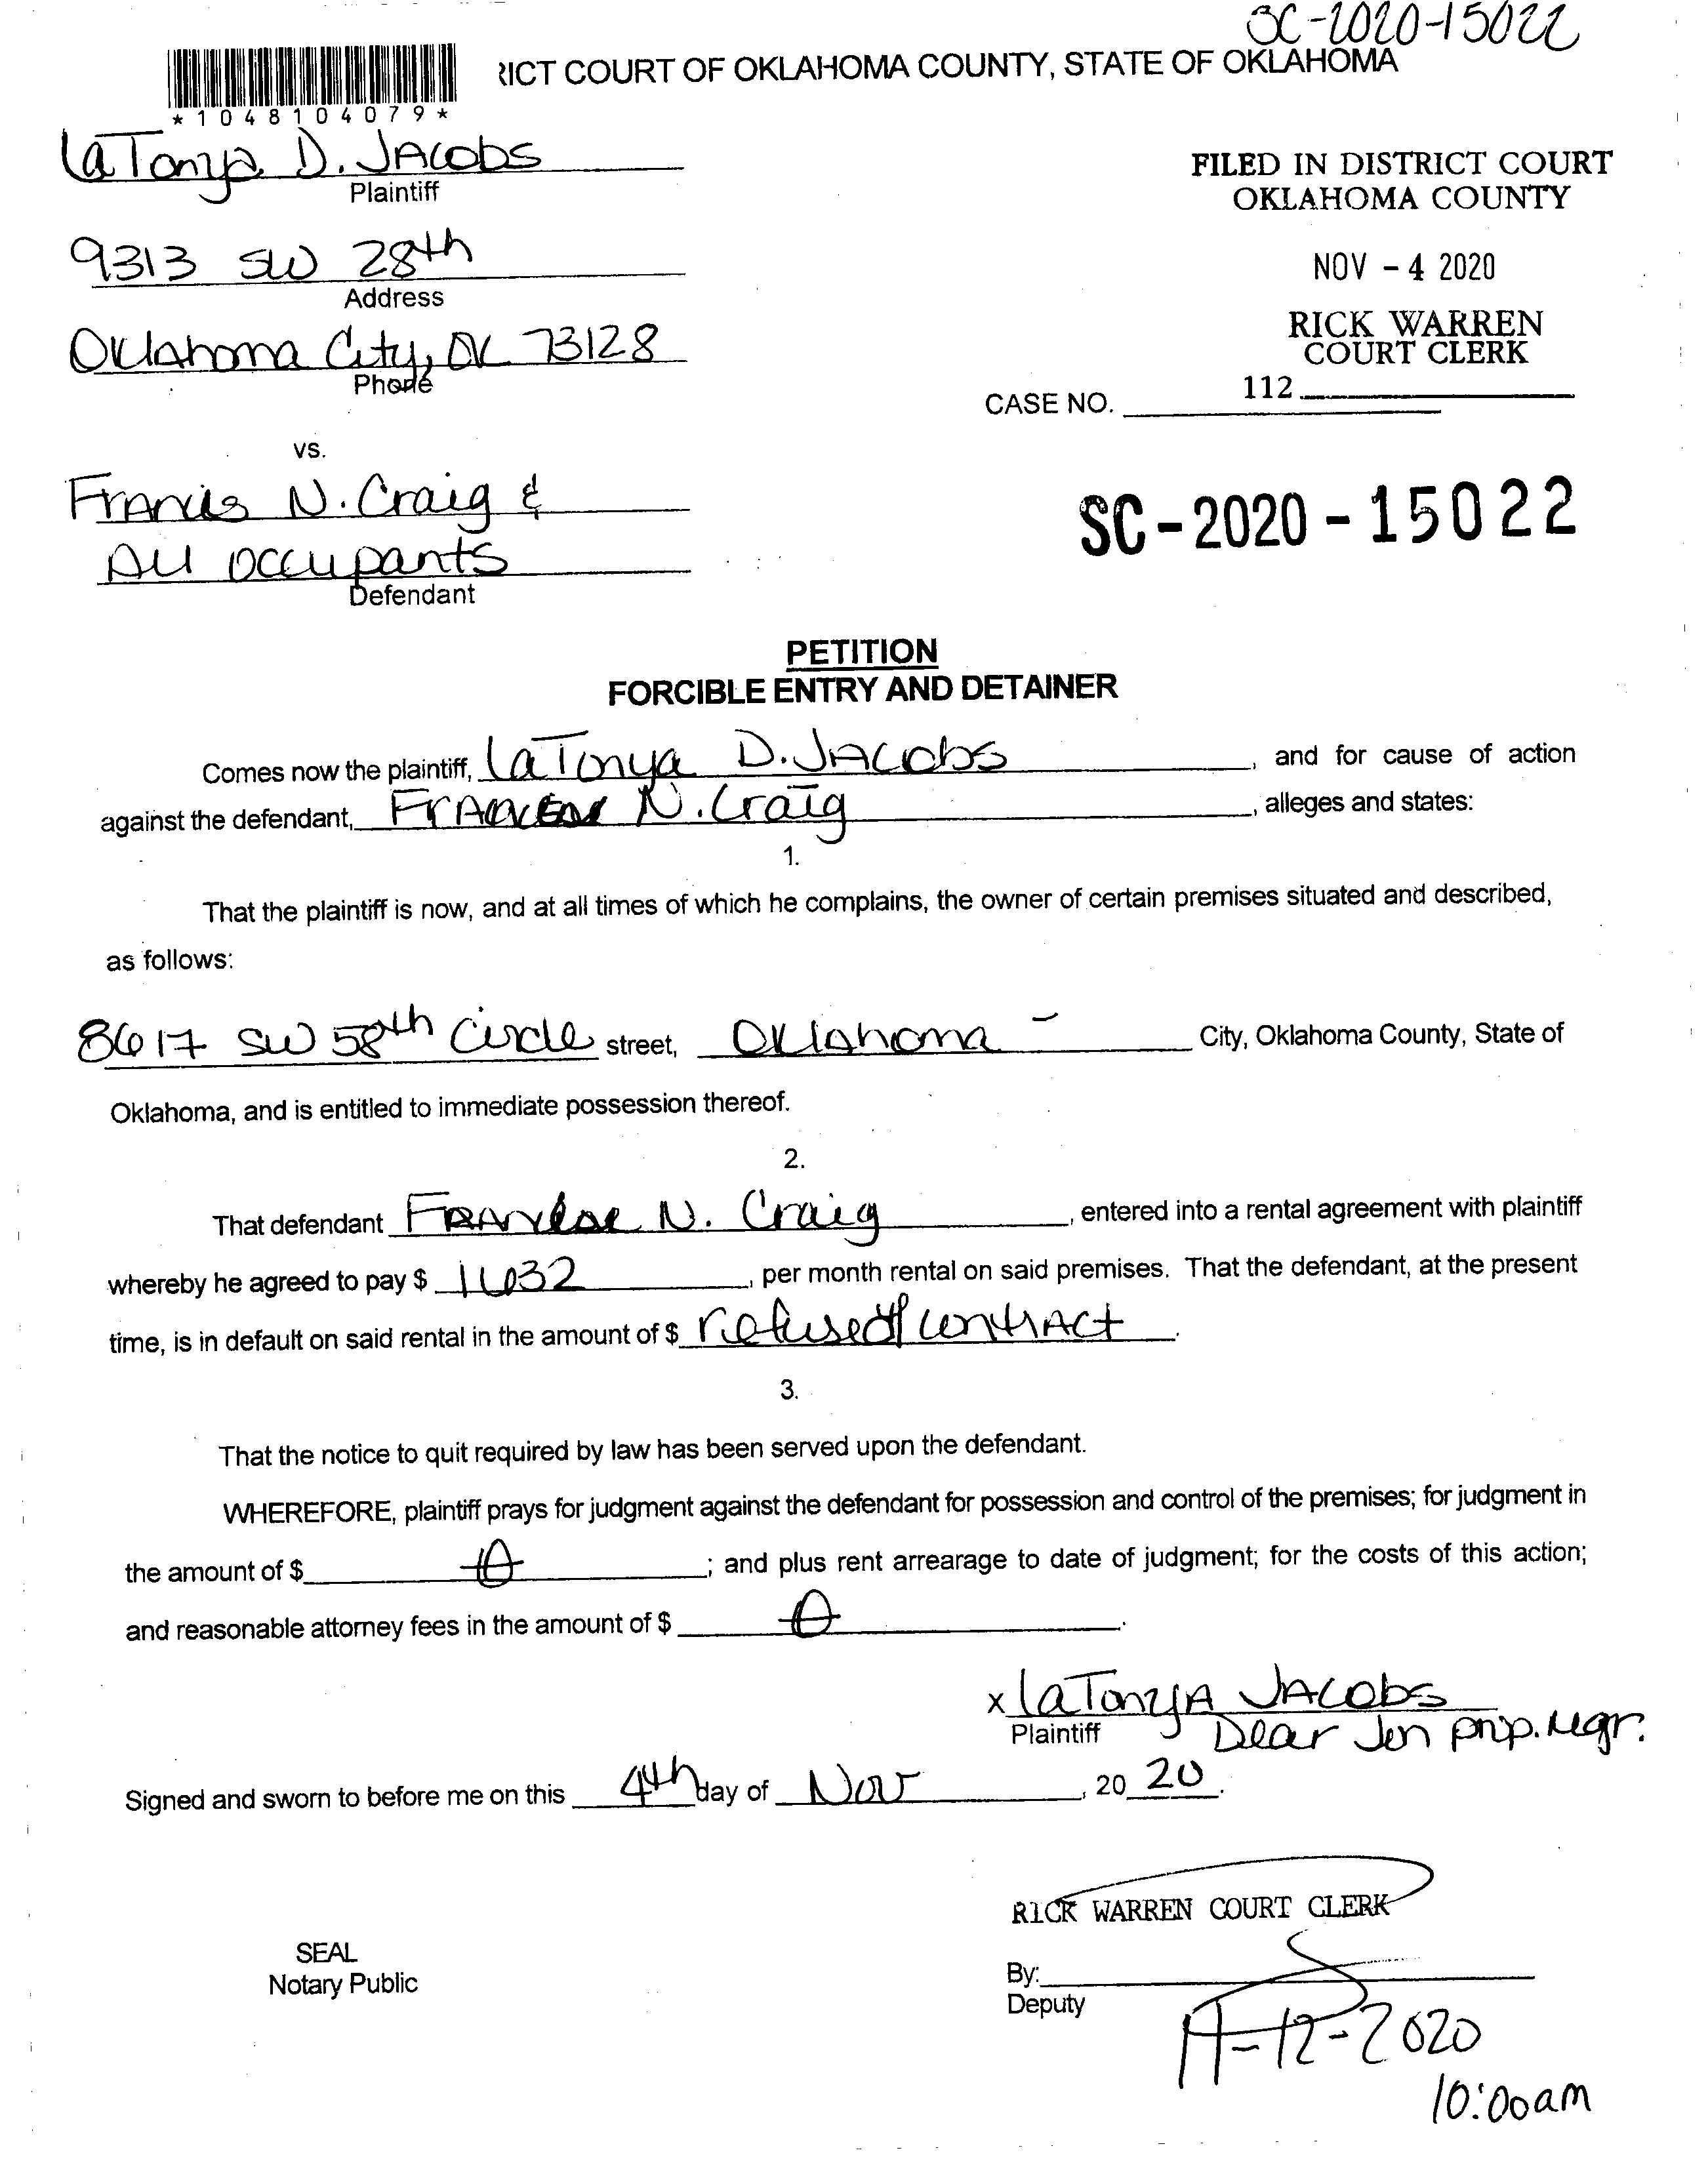 SC-2020-15022
RICT COURT OF OKLAHOMA COUNTY, STATE OF OKLAHOMA
*1048104079*
LaTonya D. Jacobs
Plaintiff
FILED IN DISTRICT COURT
OKLAHOMA COUNTY
9313 SW 28th
Address
NOV - 4 2020
Oklahoma City, OK 73128
Phone
RICK WARREN
COURT CLERK
112
CASE NO.
vs.
Francis N. Craig &
All occupants
Defendant
SC-2020-15022
PETITION
FORCIBLE ENTRY AND DETAINER
Comes now the plaintiff, LaTonya D. Jacobs, and for cause of action
against the defendant, N. Craig, alleges and states:
1.
That the plaintiff is now, and at all times of which he complains, the owner of certain premises situated and described,
as follows:
8617 SW 58th Circle street, Oklahoma - City, Oklahoma County, State of
Oklahoma, and is entitled to immediate possession thereof.
2.
That defendant N. Craig, entered into a rental agreement with plaintiff
whereby he agreed to pay $ 1632, per month rental on said premises. That the defendant, at the present
time, is in default on said rental in the amount of $ contract.
3.
That the notice to quit required by law has been served upon the defendant.
WHEREFORE, plaintiff prays for judgment against the defendant for possession and control of the premises; for judgment in
the amount of $ 0; and plus rent arrearage to date of judgment; for the costs of this action;
and reasonable attorney fees in the amount of $ 0.
x LaTonya Jacobs
Plaintiff Dear Jen prop. Mgr.
Signed and sworn to before me on this 4th day of Nov, 2020.
RICK WARREN COURT CLERK
SEAL
Notary Public
By:
Deputy
11-12-2020
10:00am